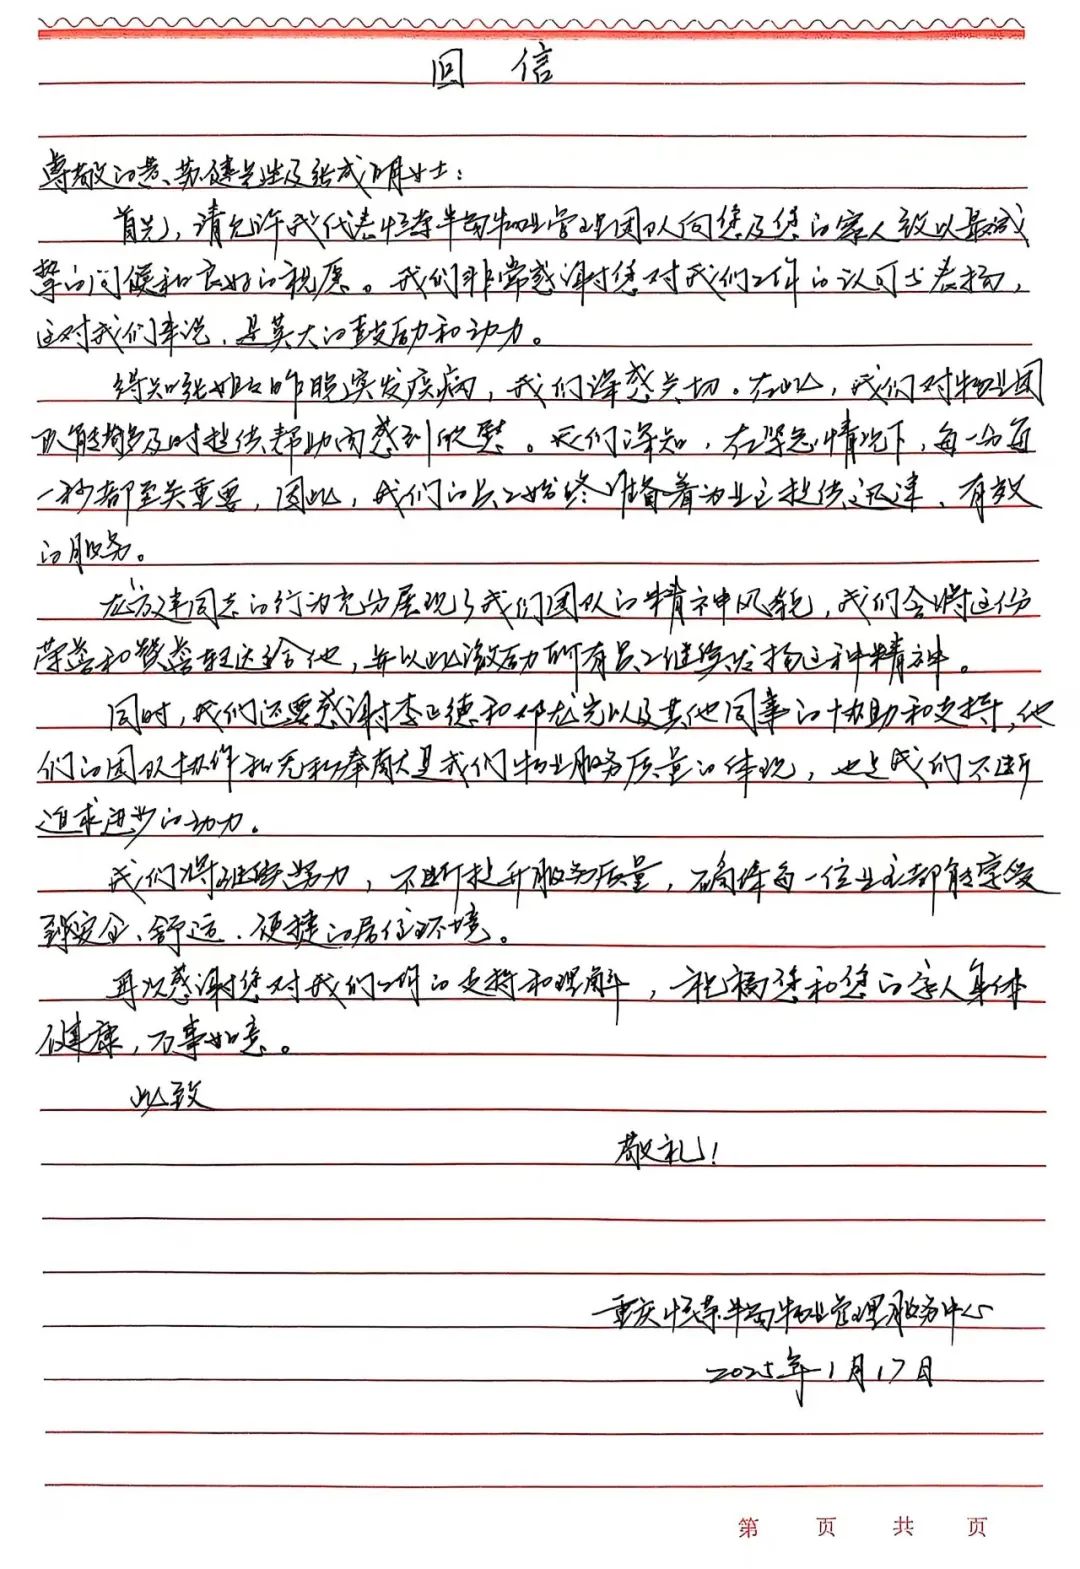 回 信
尊敬的黄、苏健先生及张成明女士：
首先，请允许我代表恒荣半岛物业管理团队向您及您的家人致以最诚
挚的问候和良好的祝愿。我们非常感谢您对我们工作的认可与表扬，
这对我们来说，是莫大的鼓励和动力。
得知张姐姐昨晚突发疾病，我们深感关切。在此，我们对物业团
队能够及时提供帮助而感到欣慰。我们深知，在紧急情况下，每一分每
一秒都至关重要，因此，我们的员工始终准备着为业主提供迅速、有效
的服务。
龙方建同志的行为充分展现了我们团队的精神风貌，我们会将这份
荣誉和赞誉转达给他，并以此激励所有员工继续发扬这种精神。
同时，我们还要感谢李正德和邓龙完以及其他同事的协助和支持，他
们的团队协作和无私奉献是我们物业服务质量的体现，也是我们不断
追求进步的动力。
我们将继续努力，不断提升服务质量，确保每一位业主都能享受
到安全、舒适、便捷的居住环境。
再次感谢您对我们工作的支持和理解，祝福您和您的家人身体
健康，万事如意。
此致
敬礼！
重庆恒荣半岛物业管理服务中心
2025年1月17日
第 页 共 页